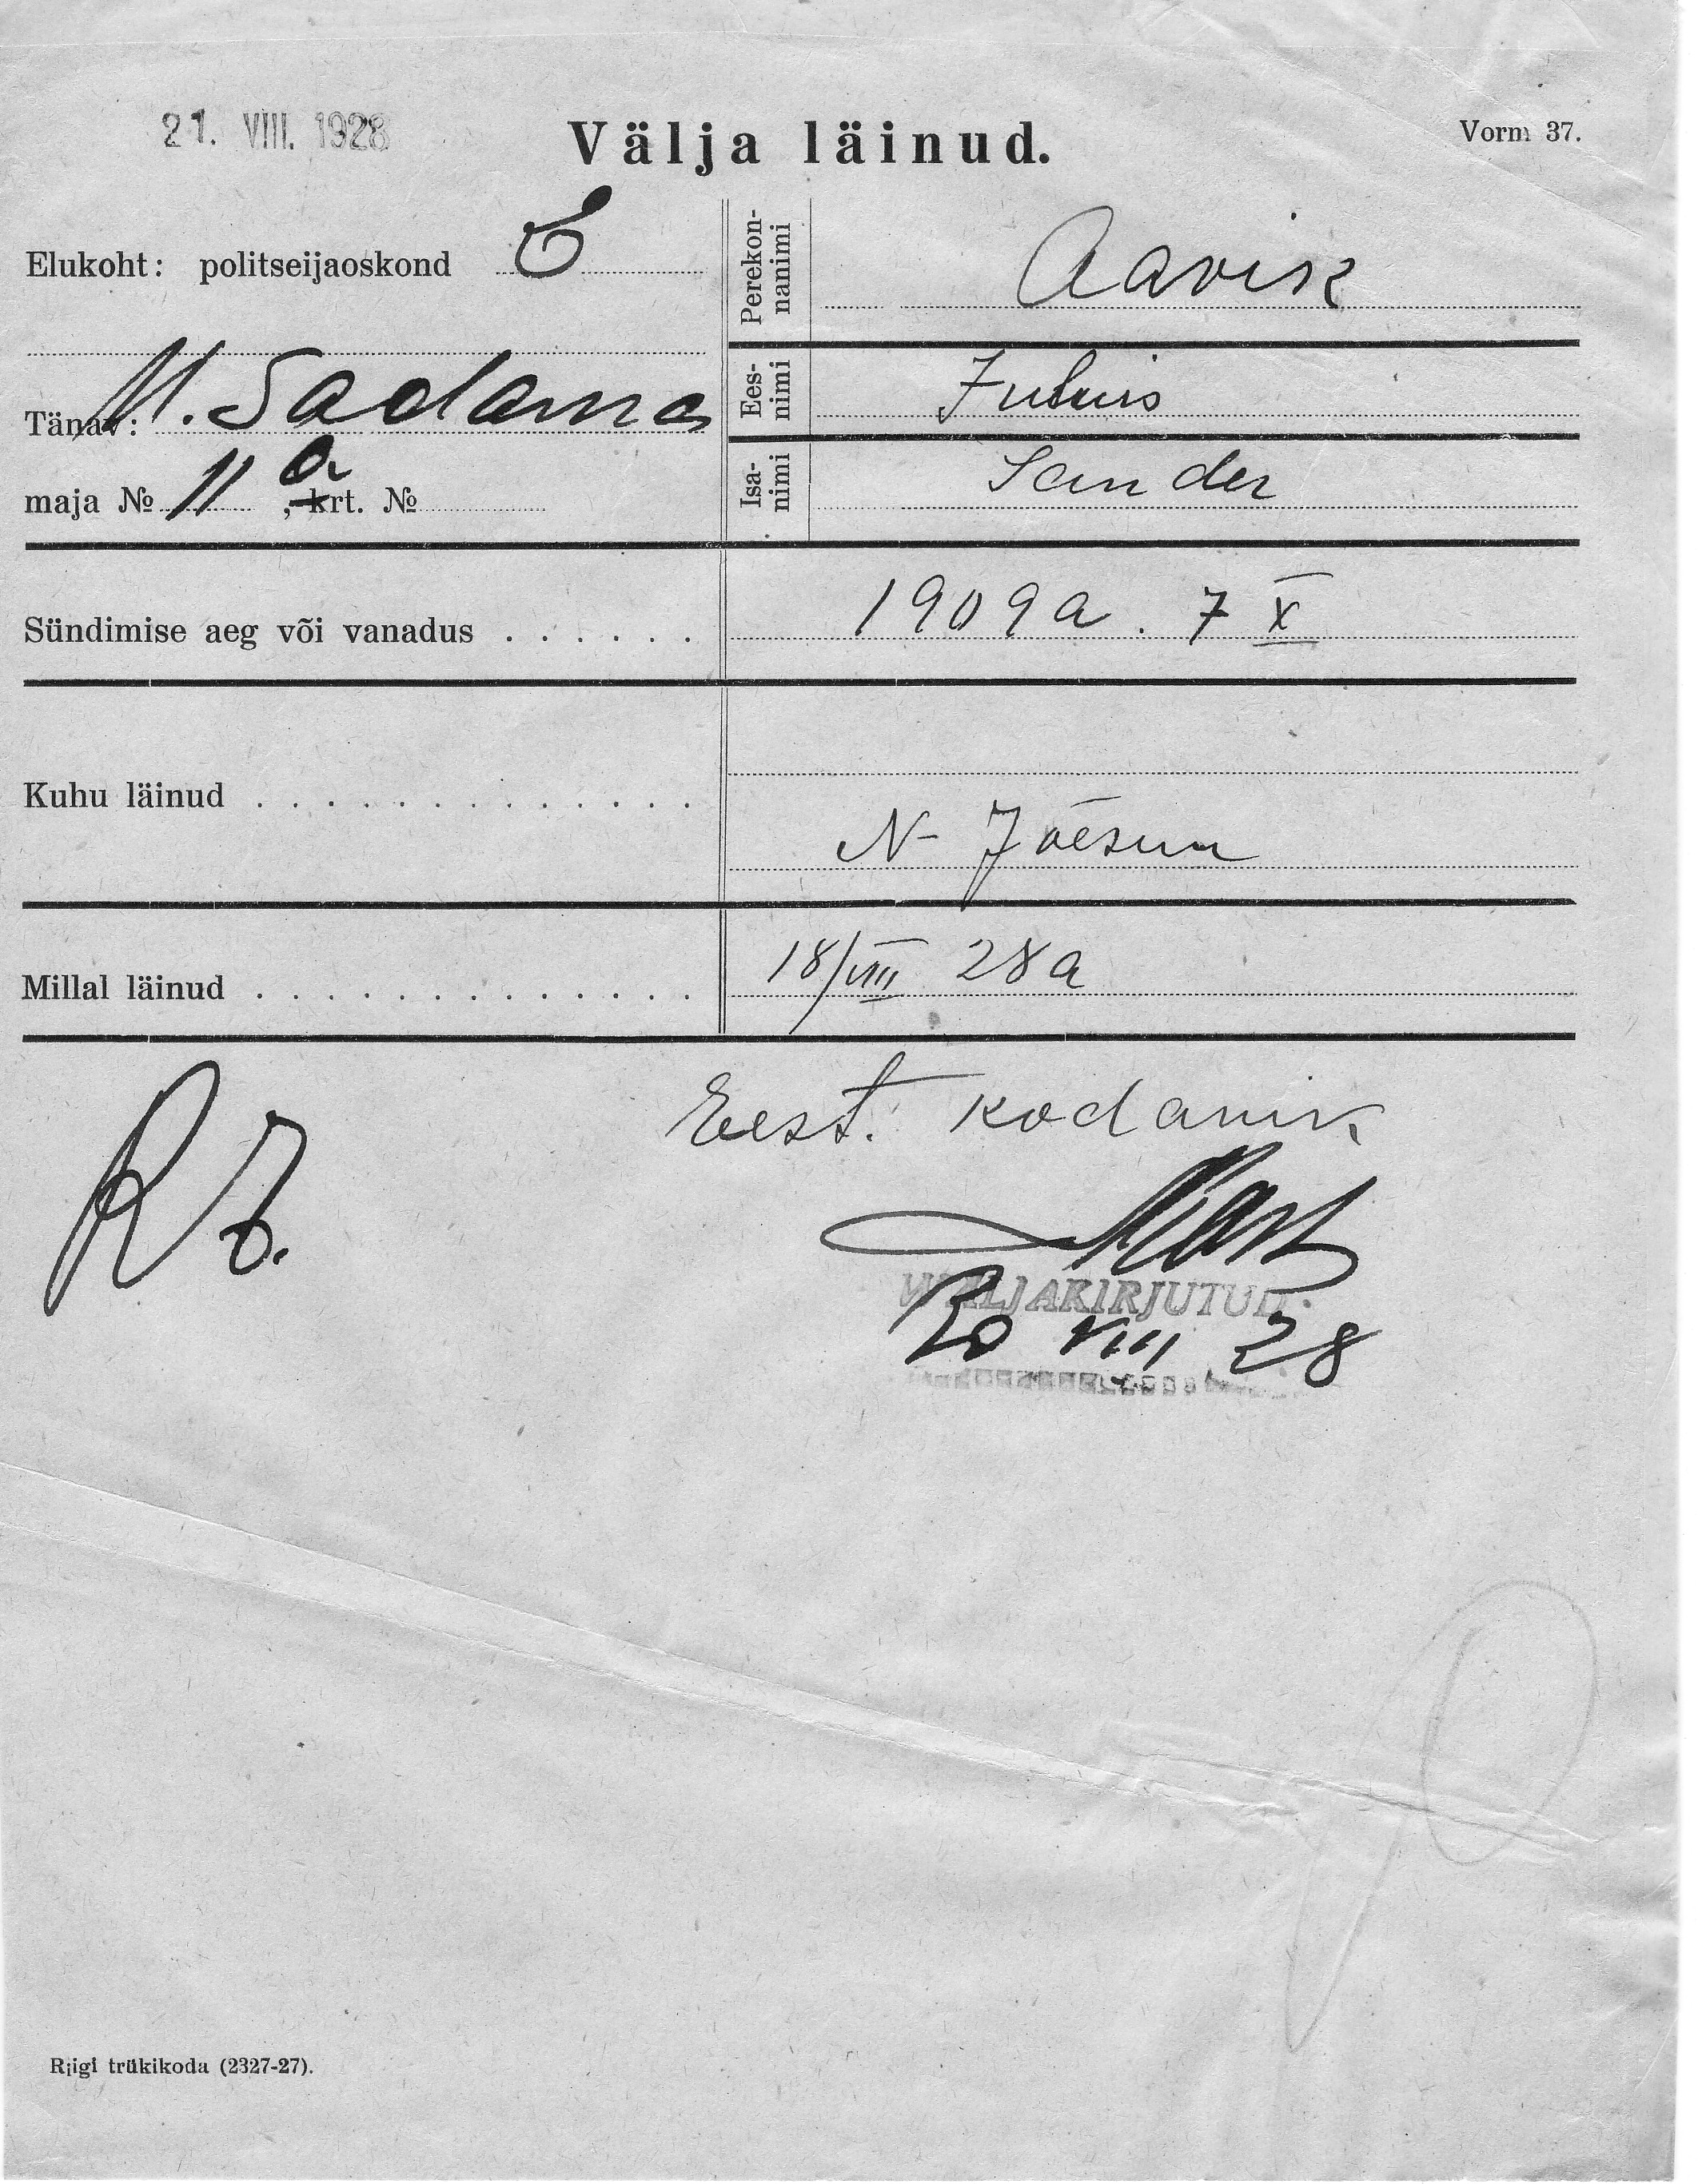 21. VIII. 1928
Välja läinud.
Vorm 37.
Elukoht: politseijaoskond E
Tänav: U. Sadama
maja № 11 a, krt. №
Perekon-
nanimi
Aavik
Ees-
nimi
Julius
Isa-
nimi
Sander
Sündimise aeg või vanadus . . . . . . 1909 a. 7 X
Kuhu läinud . . . . . . . . . . . . . N-Jõesuu
Millal läinud . . . . . . . . . . . . . 18/VIII 28 a
Eest. kodanik
WÄLJAKIRJUTUD.
20 VIII 28
Riigi trükikoda (2327-27).